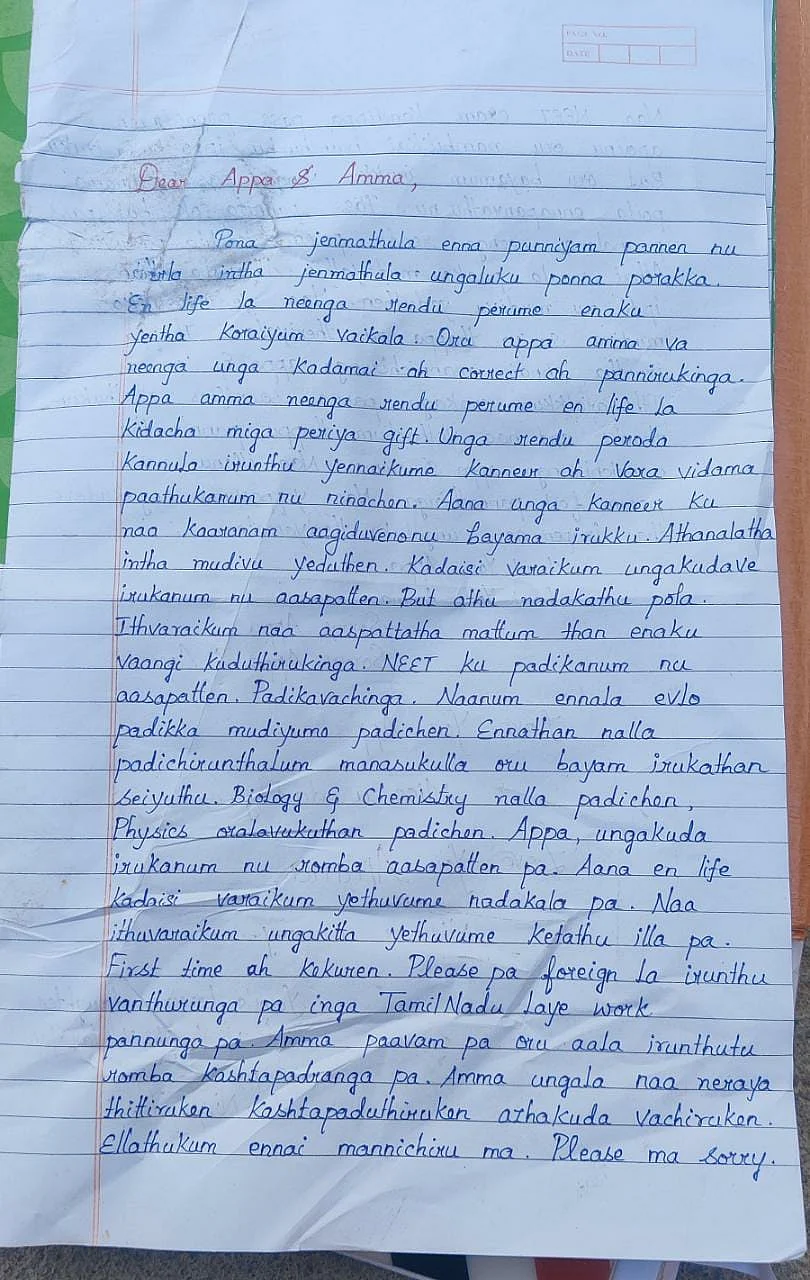 PAGE No.
DATE
Dear Appa & Amma,
Pona jenmathula enna punniyam pannen nu
intha jenmathula ungaluku ponna porakka.
En life la neenga rendu perume enaku
yentha koraiyum vaikala. Oru appa amma va
neenga unga kadamai ah correct ah pannirukinga.
Appa amma neenga rendu perume en life la
kidacha miga periya gift. Unga rendu peroda
kannula irunthu yennaikume kanneer ah vara vidama
paathukanum nu ninachen. Aana unga kanneer ku
naa kaaranam aagiduvenonu bayama irukku. Athanalatha
intha mudivu yeduthen. Kadaisi varaikum ungakudave
irukanum nu aasapatten. But athu nadakathu pola.
Ithvaraikum naa aaspattatha mattum than enaku
vaangi kuduthirukinga. NEET ku padikanum nu
aasapatten. Padikavachinga. Naanum ennala evlo
padikka mudiyumo padichen. Ennathan nalla
padichirunthalum manasukulla oru bayam irukathan
seiyuthu. Biology & Chemistry nalla padichen,
Physics oralavukuthan padichen. Appa, ungakuda
irukanum nu romba aasapatten pa. Aana en life
kadaisi varaikum yethuvume nadakala pa. Naa
ithuvaraikum ungakitta yethuvume ketathu illa pa.
First time ah kekuren. Please pa foreign la irunthu
vanthurunga pa inga TamilNadu laye work
pannunga pa. Amma paavam pa oru aala irunthutu
romba kashtapadranga pa. Amma ungala naa neraya
thittiruken kashtapaduthiruken azhakuda vachiruken.
Ellathukum ennai mannichiru ma. Please ma sorry.